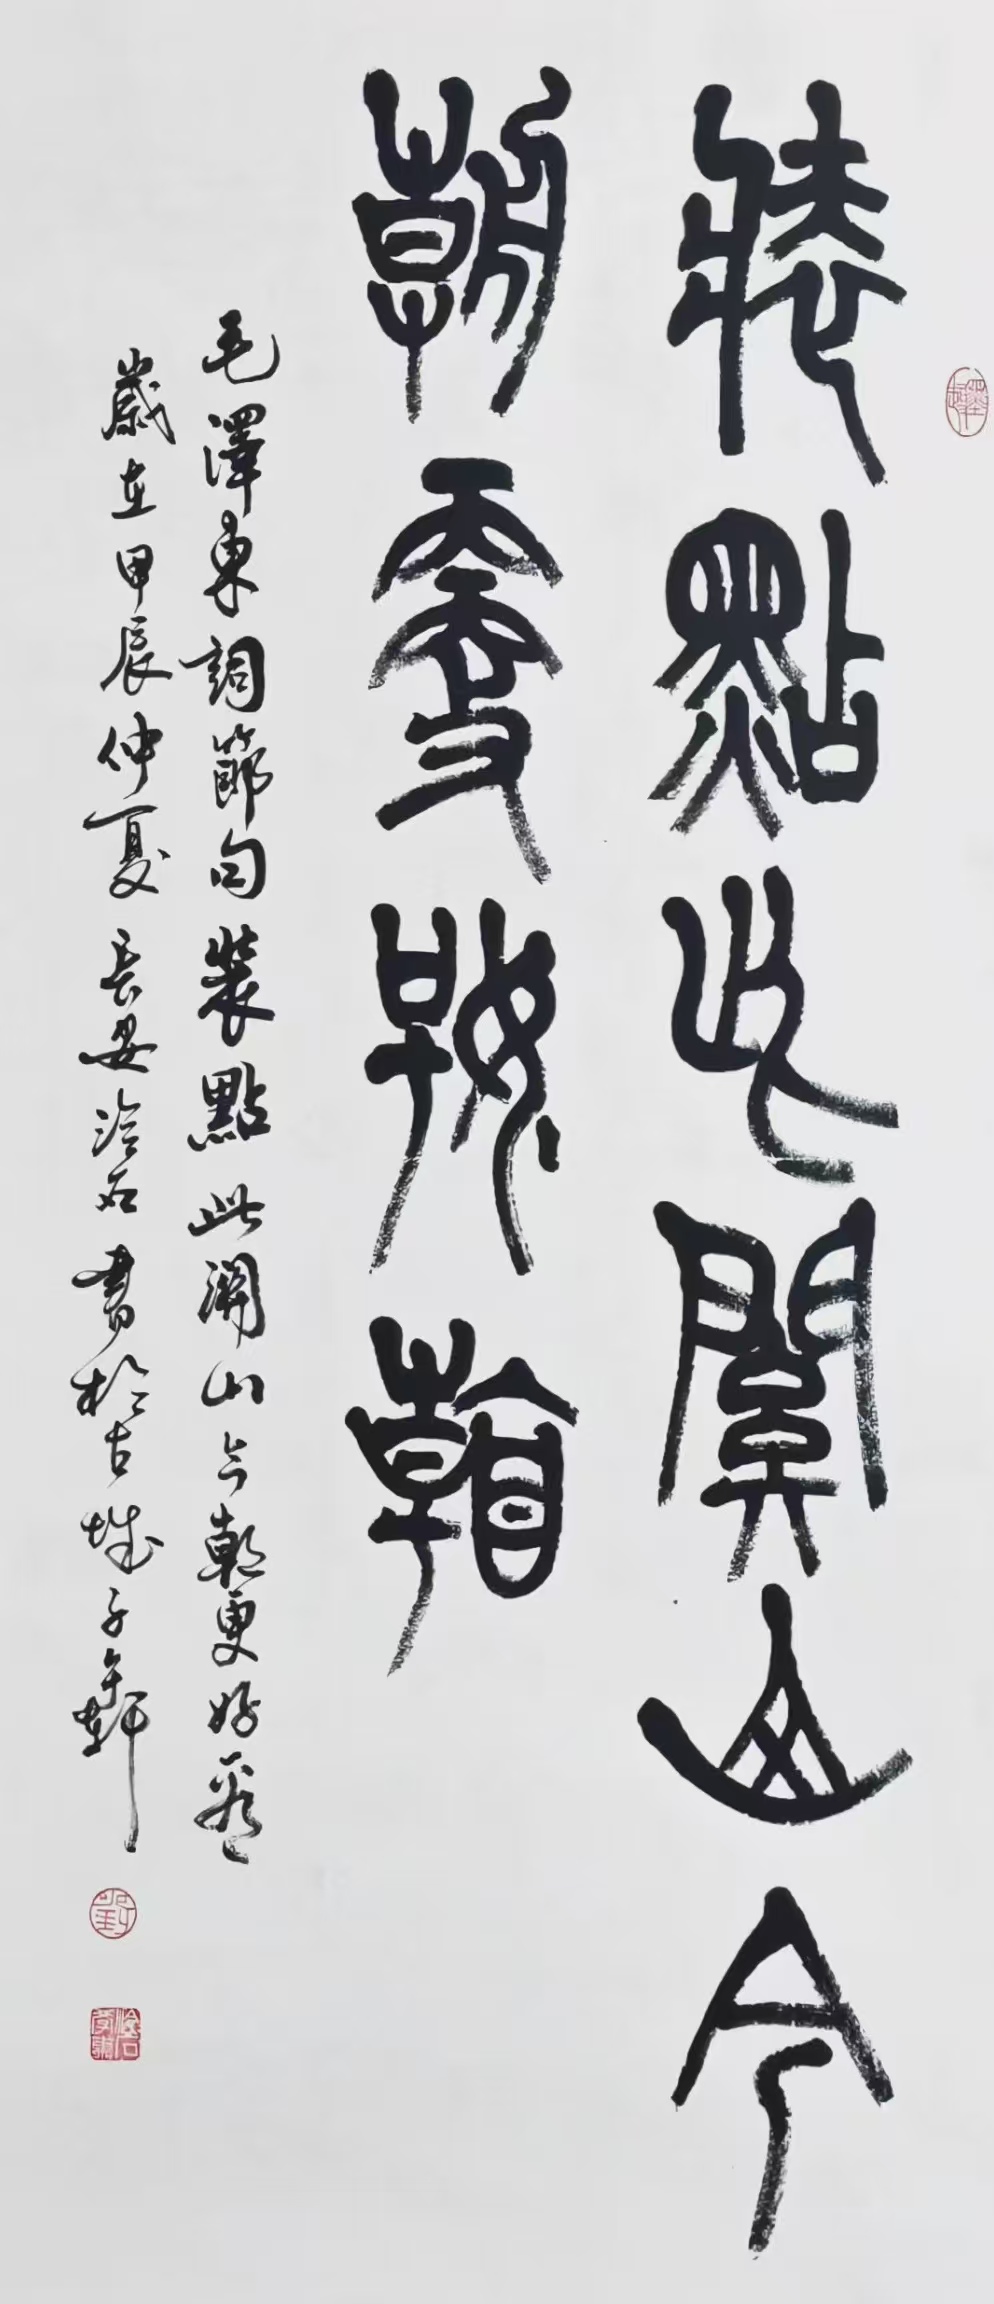 裝點此關山今
朝更好看
毛澤東詞節句裝點此關山今朝更好看
歲在甲辰仲夏長安冷石書於古城子午軒